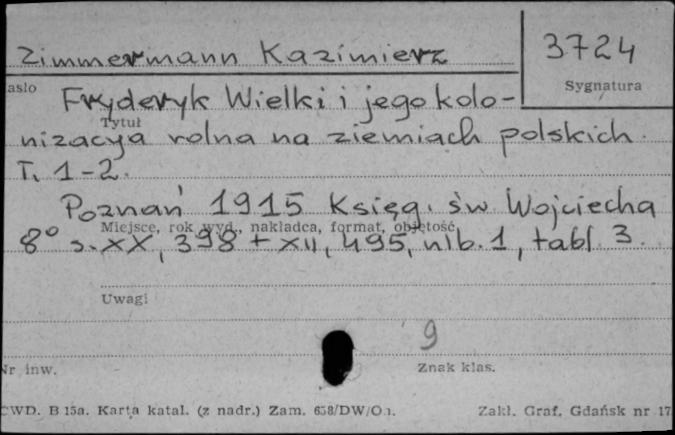 Zimmermann Kazimierz
3724
asło
Sygnatura
Fryderyk Wielki i jego kolo-
Tytuł
nizacya rolna na ziemiach polskich.
T. 1-2.
Poznań 1915 Księg. św. Wojciecha
Miejsce, rok wyd., nakładca, format, objętość
8° s. XX, 398 + XII, 495, nlb. 1, tabl. 3.
Uwagi
9
Nr inw.
Znak klas.
CWD. B 15a. Karta katal. (z nadr.) Zam. 658/DW/O.
Zakł. Graf. Gdańsk nr 17